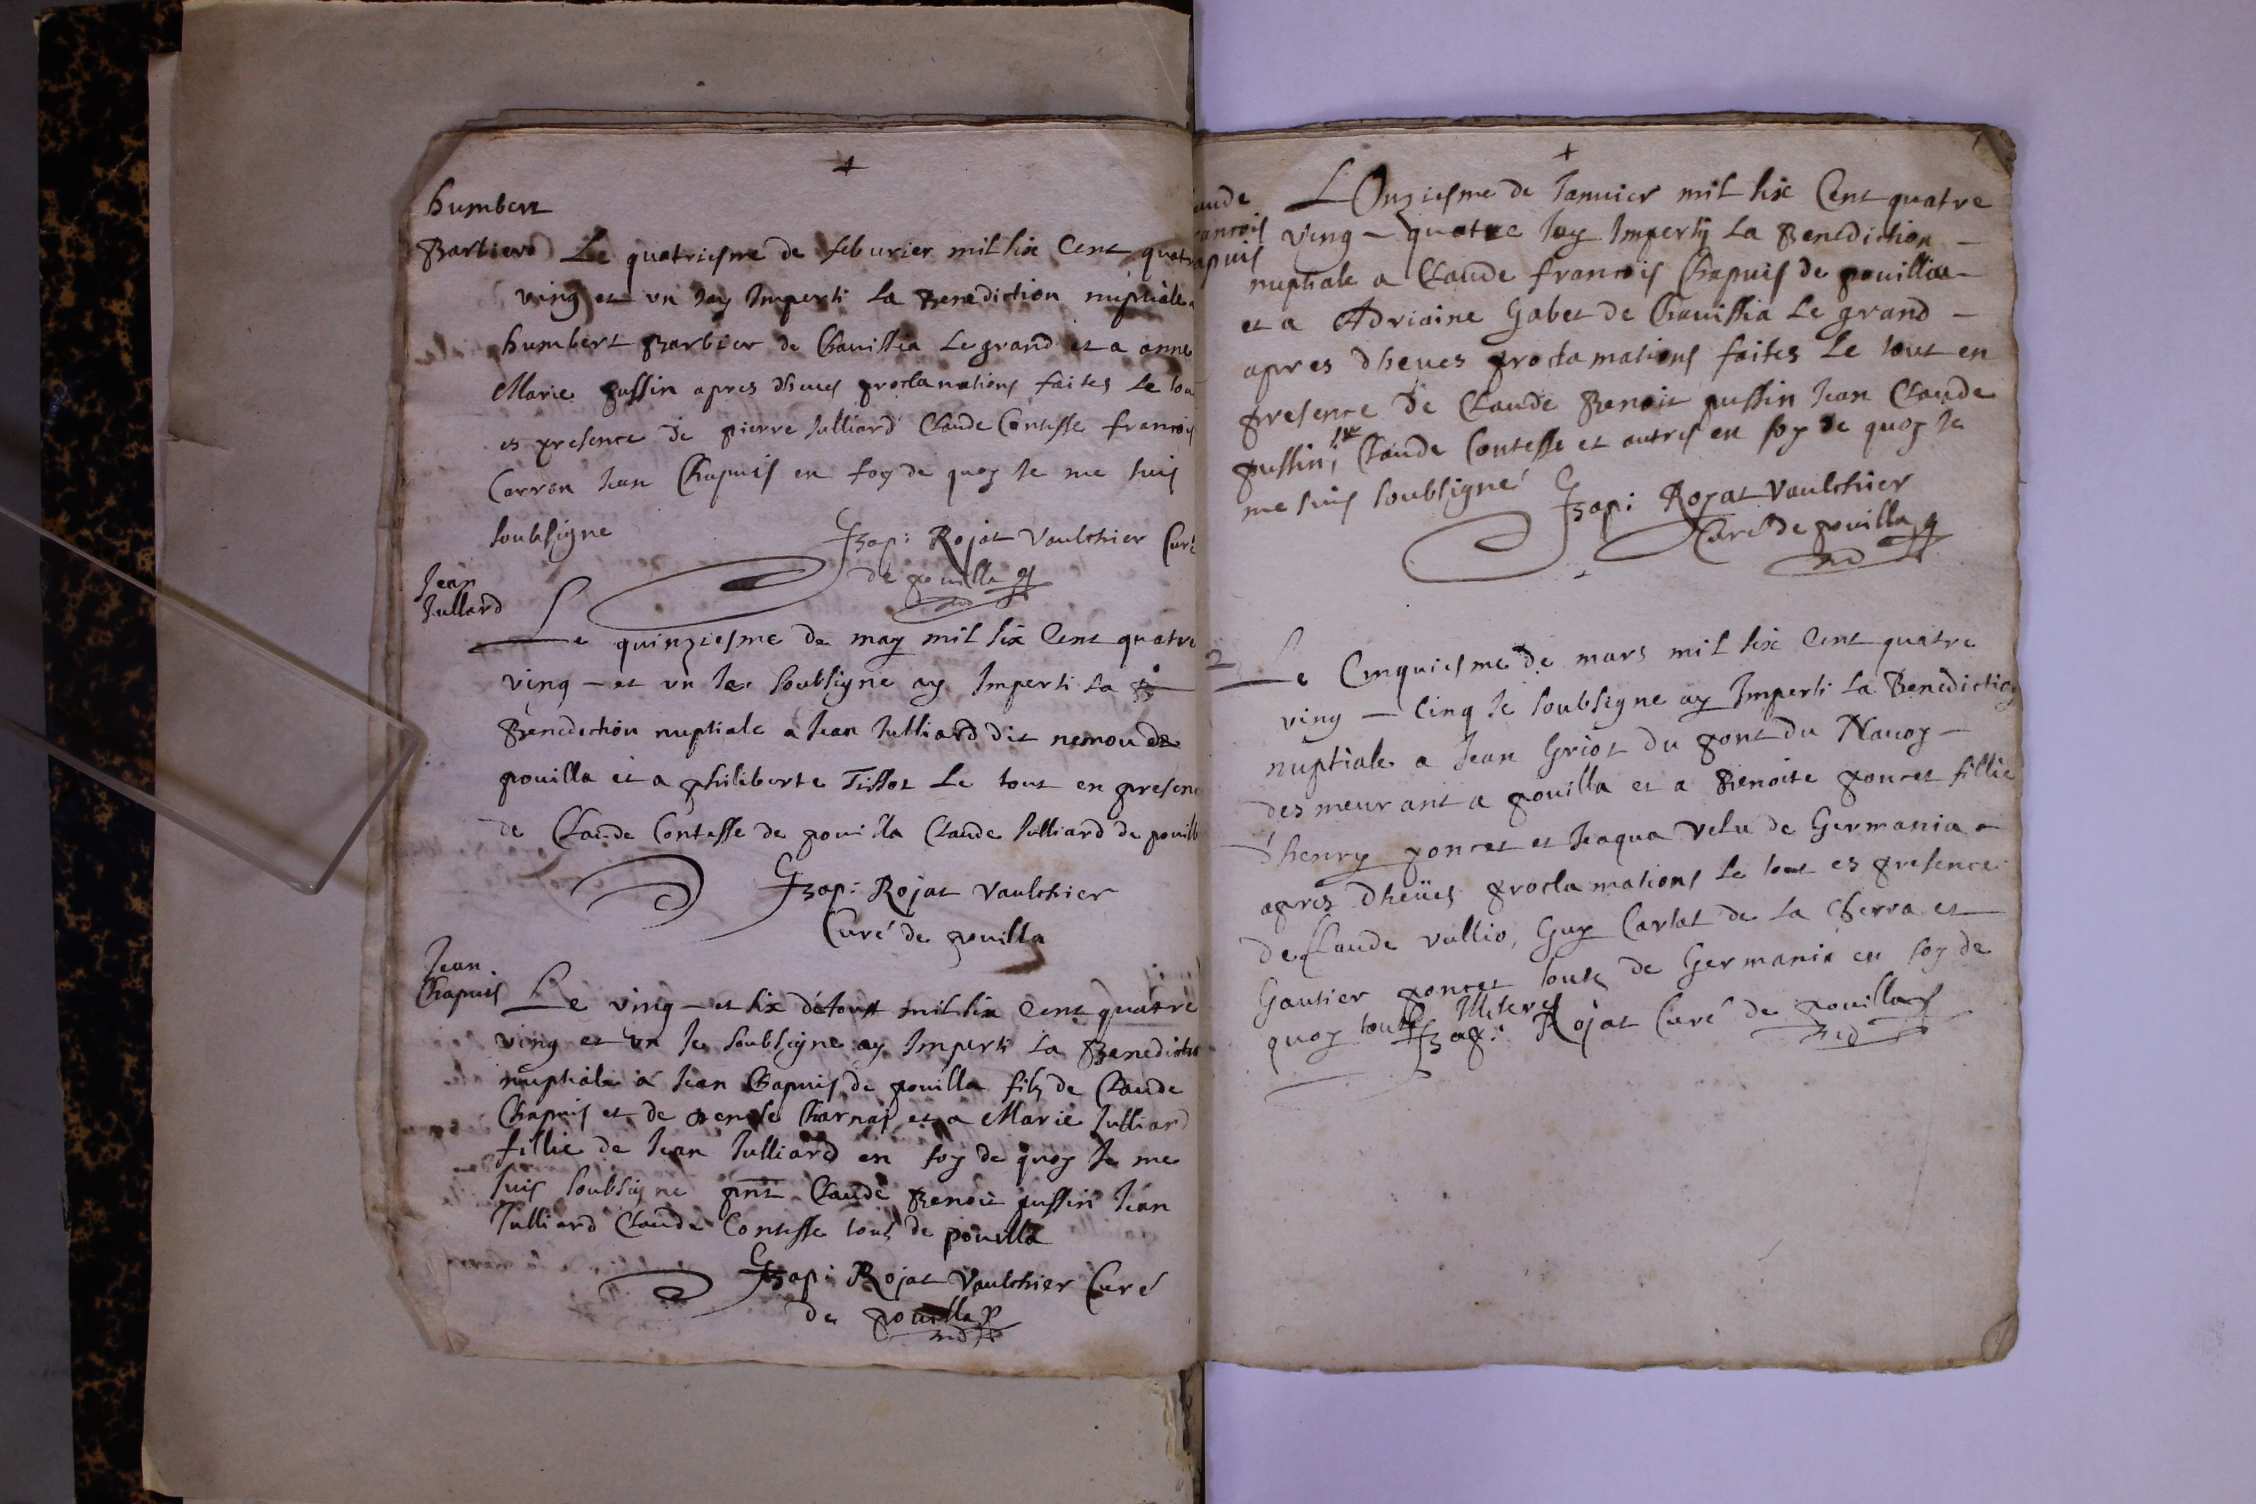 +
humbert
Barbier Le quatriesme de feburier mil six Cent quatre
ving et vn Jay Imperti la Benediction nuptiale a
humbert Barbier de Chauissia Le grand et a anne
Marie pussin apres dheues proclamations faites Le tou
es presence de pierre Julliard Claude Contesse francois
Carron Jean Chapuis en foy de quoy Je me suis
soubsigne JBap: Rojat Vaulchier Curé
de pouilla
Jean
Julliard
Le quinziesme de may mil six Cent quatre
ving - et vn Je soubsigne ay Imperti la
Benediction nuptiale a Jean Julliard dit nemou de
pouilla et a philiberte Tissot Le tout en presence
de Claude Contesse de pouilla Claude Julliard de pouilla
JBap: Rojat Vaulchier
Curé de pouilla
Jean
Chapuis Le ving - et six d'Aoust mil six Cent quatre
ving et vn Je soubsigne ay Imperti la Benediction
nuptiale a Jean Chapuis de pouilla filz de Claude
Chapuis et de Charnas et a Marie Julliard
fillie de Jean Julliard en foy de quoy Je me
suis soubsigne pnt Claude Benoit pussin Jean
Julliard Claude Contesse tous de pouilla
JBap: Rojat Vaulchier Curé
de pouilla
+
aude LOnziesme de Januier mil six Cent quatre
ancois ving - quatre Jay Imperty La Benediction -
apuis nuptiale a Claude francois Chapuis de pouillia
et a Adriaine Gabet de Chauissia Le grand -
apres dheues proclamations faites Le tout en
presence de Claude Benoit pussin Jean Claude
pussin, Claude Contesse et autres en foy de quoy Je
me suis soubsigné JBap: Rojat Vaulchier
Curé de pouilla
2 Le Cinquiesme de mars mil six Cent quatre
ving - Cinq Je soubsigne ay Imperti La Benediction
nuptiale a Jean Griot du pont du Nauoy -
desmeurant a pouilla et a Benoite poncet fillie
d'henry poncet et Jaqua Velu de Germania -
apres dheües proclamations Le tout es presence
de Claude vullio, Guy Carlat de La Cherra et
Gautier poncet tous de Germania en foy de
quoy tous Illiteres
JBap: Rojat Curé de pouilla